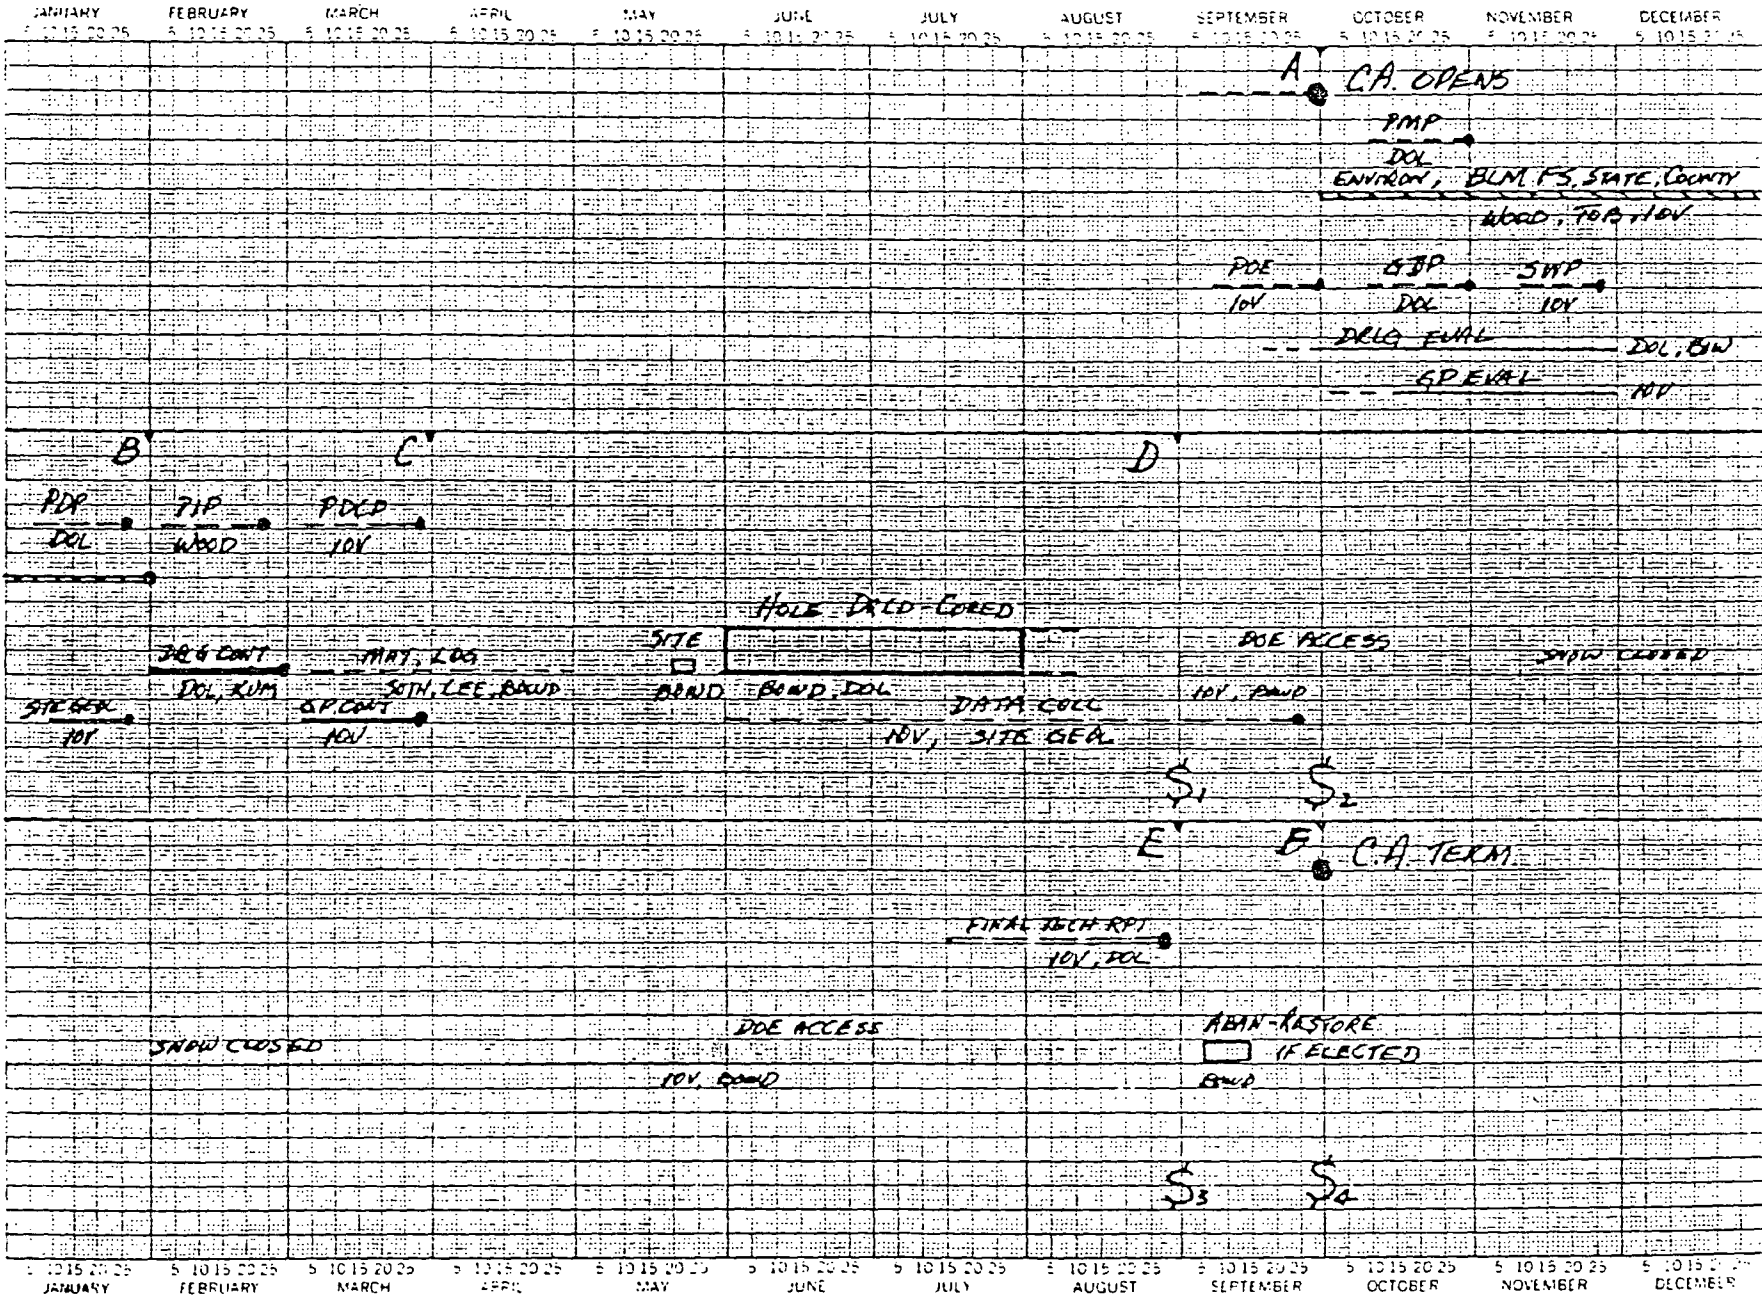 JANUARY FEBRUARY MARCH APRIL MAY JUNE JULY AUGUST SEPTEMBER OCTOBER NOVEMBER DECEMBER
5 10 15 20 25 5 10 15 20 25 5 10 15 20 25 5 10 15 20 25 5 10 15 20 25 5 10 15 20 25 5 10 15 20 25 5 10 15 20 25 5 10 15 20 25 5 10 15 20 25 5 10 15 20 25 5 10 15 20 25
A C.A. OPENS
PMP
DOL
ENVIRON, BLM, FS, STATE, COUNTY
WOOD, TOB, IOV
POE GBP SWP
IOV DOL IOV
DRLG EVAL DOL, BLW
GP EVAL IOV
B C D
PDP TIP PDCP
DOL WOOD IOV
HOLE DRLD-CORED
DRLG CONT MAT, LOG SITE DOE ACCESS SNOW CLOSED
DOL, KUM SOTH, LEE, BAND BAND BAND, DOL IOV, BAND
SITE GEOL GP CONT DATA COLL
IOV IOV IOV, SITE GEOL
$1 $2
E F C.A. TERM.
FINAL TECH RPT
IOV, DOL
SNOW CLOSED DOE ACCESS ABAN-RESTORE
IF ELECTED
IOV, BAND BAND
$3 $4
5 10 15 20 25 5 10 15 20 25 5 10 15 20 25 5 10 15 20 25 5 10 15 20 25 5 10 15 20 25 5 10 15 20 25 5 10 15 20 25 5 10 15 20 25 5 10 15 20 25 5 10 15 20 25 5 10 15 20 25
JANUARY FEBRUARY MARCH APRIL MAY JUNE JULY AUGUST SEPTEMBER OCTOBER NOVEMBER DECEMBER